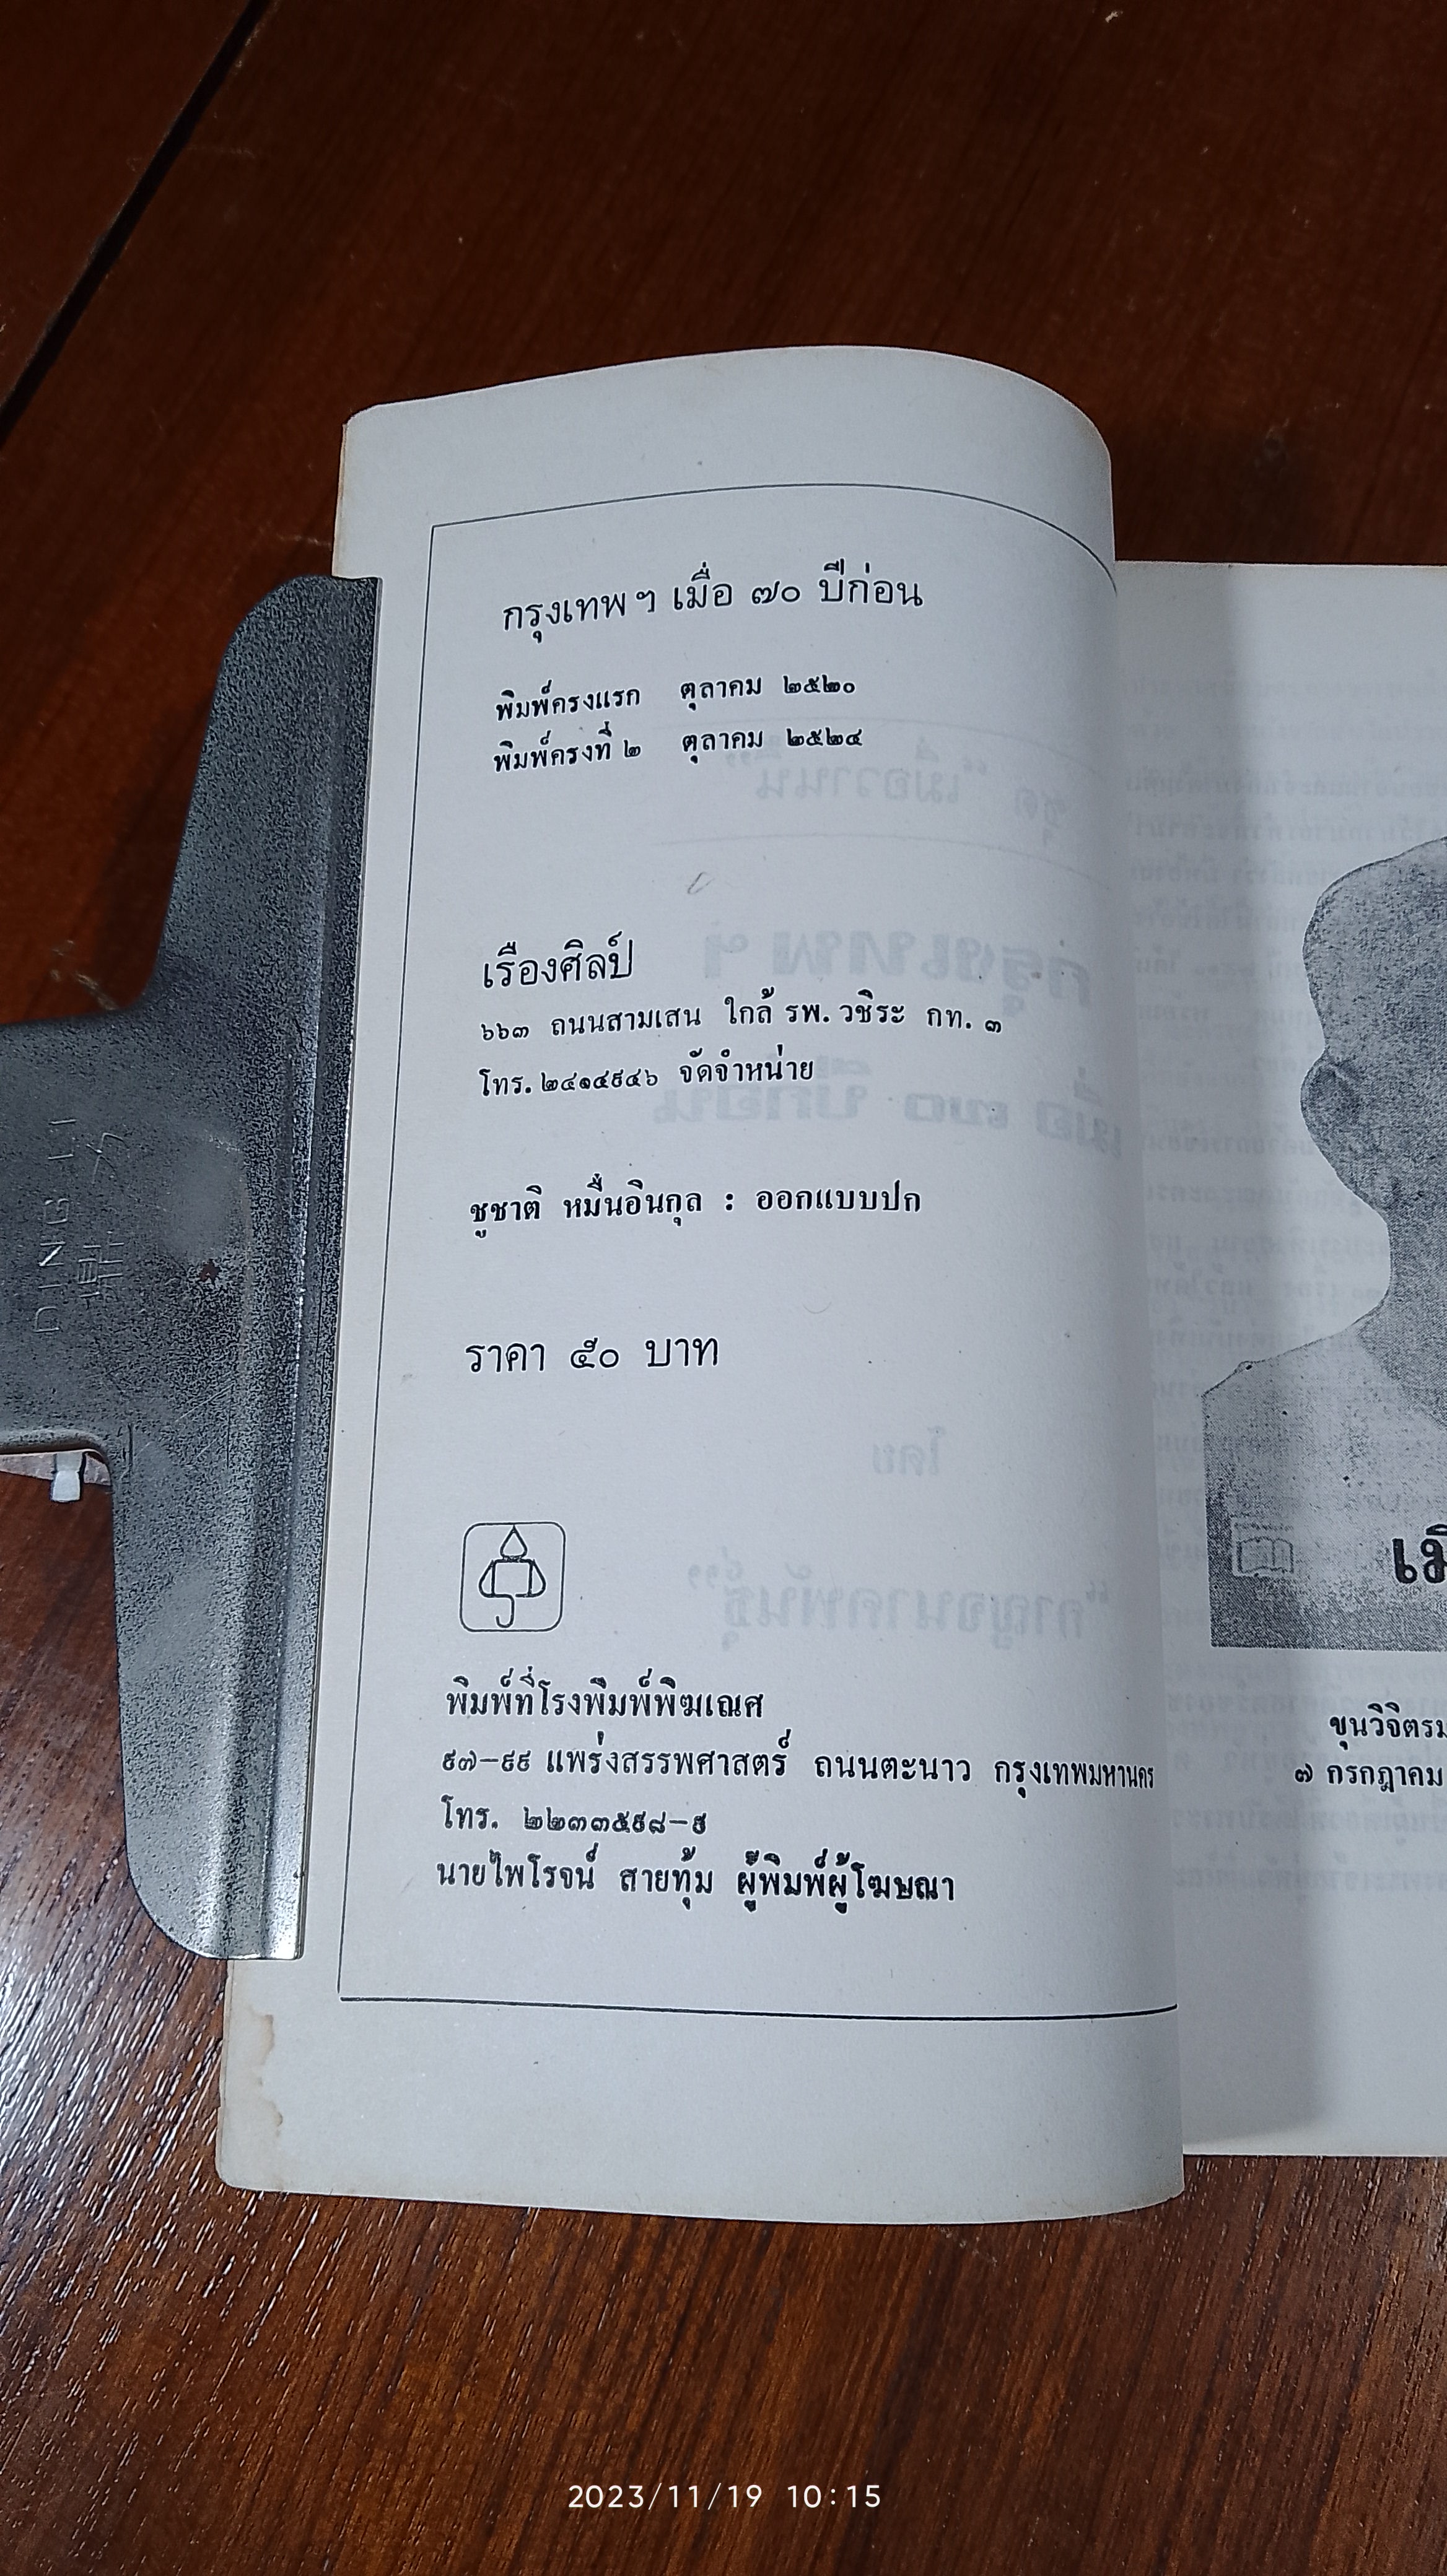 กรุงเทพ ฯ เมื่อ ๗๐ ปีก่อน
พิมพ์ครงแรก ตุลาคม ๒๕๒๐
พิมพ์ครงที่ ๒ ตุลาคม ๒๕๒๔
เรืองศิลป์
๖๖๓ ถนนสามเสน ใกล้ รพ. วชิระ กท. ๓
โทร. ๒๔๑๔๙๔๖ จัดจำหน่าย
ชูชาติ หมื่นอินกุล : ออกแบบปก
ราคา ๕๐ บาท
พิมพ์ที่โรงพิมพ์พิฆเณศ
๙๗-๙๙ แพร่งสรรพศาสตร์ ถนนตะนาว กรุงเทพมหานคร
โทร. ๒๒๓๓๕๙๘-๙
นายไพโรจน์ สายทุ้ม ผู้พิมพ์ผู้โฆษณา
ขุนวิจิตรม
๗ กรกฎาคม
DING LI
2023/11/19 10:15